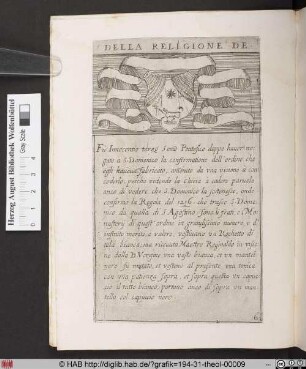 DELLA RELIGIONE DE
Fu Innocentio terzo sono Pontefice doppo haver ne
gato a S. Domenico la confirmatione dell'ordine che
egli haueua fabricato, constretto da una visione a con
cederlo, perche vedendo la chiesa a cadere
anco di vedere che S. Domenico la sostenesse, onde
confermò la Regola del
nico da quella di S. Agostino
nasterij di quest'ordine in grandissimo numero e d'
infinito merito, e valore, vestiuano un Rochetto di
tela bianca, ma ricevuta Maestro Reginaldo in visio
ne dalla B. Vergine una veste bianca, et un mantel
nero, et vestono al presente una tonica
con una patienza sopra, et sopra questa un capuc
cio di tutto bianco, portano anco di sopra un man
tello col capuccio nero
6
Herzog August Bibliothek Wolfenbüttel
© HAB http://diglib.hab.de/?grafik=194-31-theol-00009